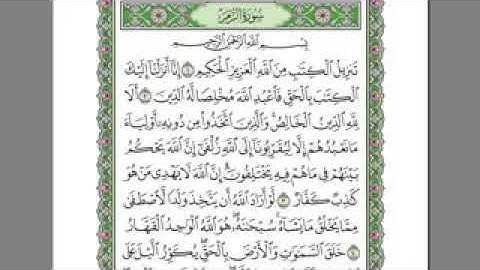 سُورَةُ الزُّمَرِ
بِسْمِ اللَّهِ الرَّحْمَٰنِ الرَّحِيمِ
تَنزِيلُ الْكِتَٰبِ مِنَ اللَّهِ الْعَزِيزِ الْحَكِيمِ ١ إِنَّا أَنزَلْنَا إِلَيْكَ
الْكِتَٰبَ بِالْحَقِّ فَاعْبُدِ اللَّهَ مُخْلِصًا لَّهُ الدِّينَ ٢ أَلَا
لِلَّهِ الدِّينُ الْخَالِصُ وَالَّذِينَ اتَّخَذُوا مِن دُونِهِ أَوْلِيَاءَ
مَا نَعْبُدُهُمْ إِلَّا لِيُقَرِّبُونَا إِلَى اللَّهِ زُلْفَىٰ إِنَّ اللَّهَ يَحْكُمُ
بَيْنَهُمْ فِي مَا هُمْ فِيهِ يَخْتَلِفُونَ إِنَّ اللَّهَ لَا يَهْدِي مَنْ هُوَ
كَٰذِبٌ كَفَّارٌ ٣ لَّوْ أَرَادَ اللَّهُ أَن يَتَّخِذَ وَلَدًا لَّاصْطَفَىٰ
مِمَّا يَخْلُقُ مَا يَشَاءُ سُبْحَٰنَهُ هُوَ اللَّهُ الْوَٰحِدُ الْقَهَّارُ
٤ خَلَقَ السَّمَٰوَٰتِ وَالْأَرْضَ بِالْحَقِّ يُكَوِّرُ الَّيْلَ عَلَى